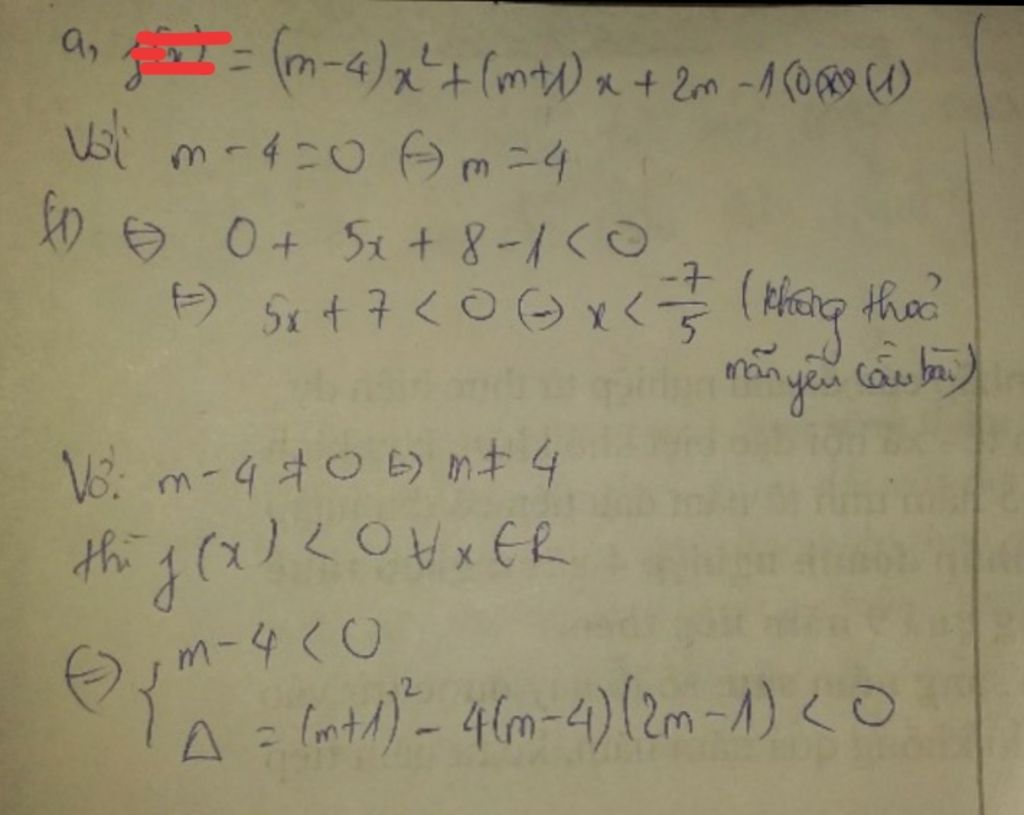 a, = (m-4)x² + (m+1)x + 2m -1 <0 (1)
Với m - 4 = 0 ⇔ m = 4
(1) ⇔ 0 + 5x + 8 - 1 < 0
⇔ 5x + 7 < 0 ⇔ x < -7/5 (không thoả
mãn yêu cầu bài)
Với m - 4 ≠ 0 ⇔ m ≠ 4
thì f(x) < 0 ∀x ∈ R
⇔ { m - 4 < 0
Δ = (m+1)² - 4(m-4)(2m-1) < 0